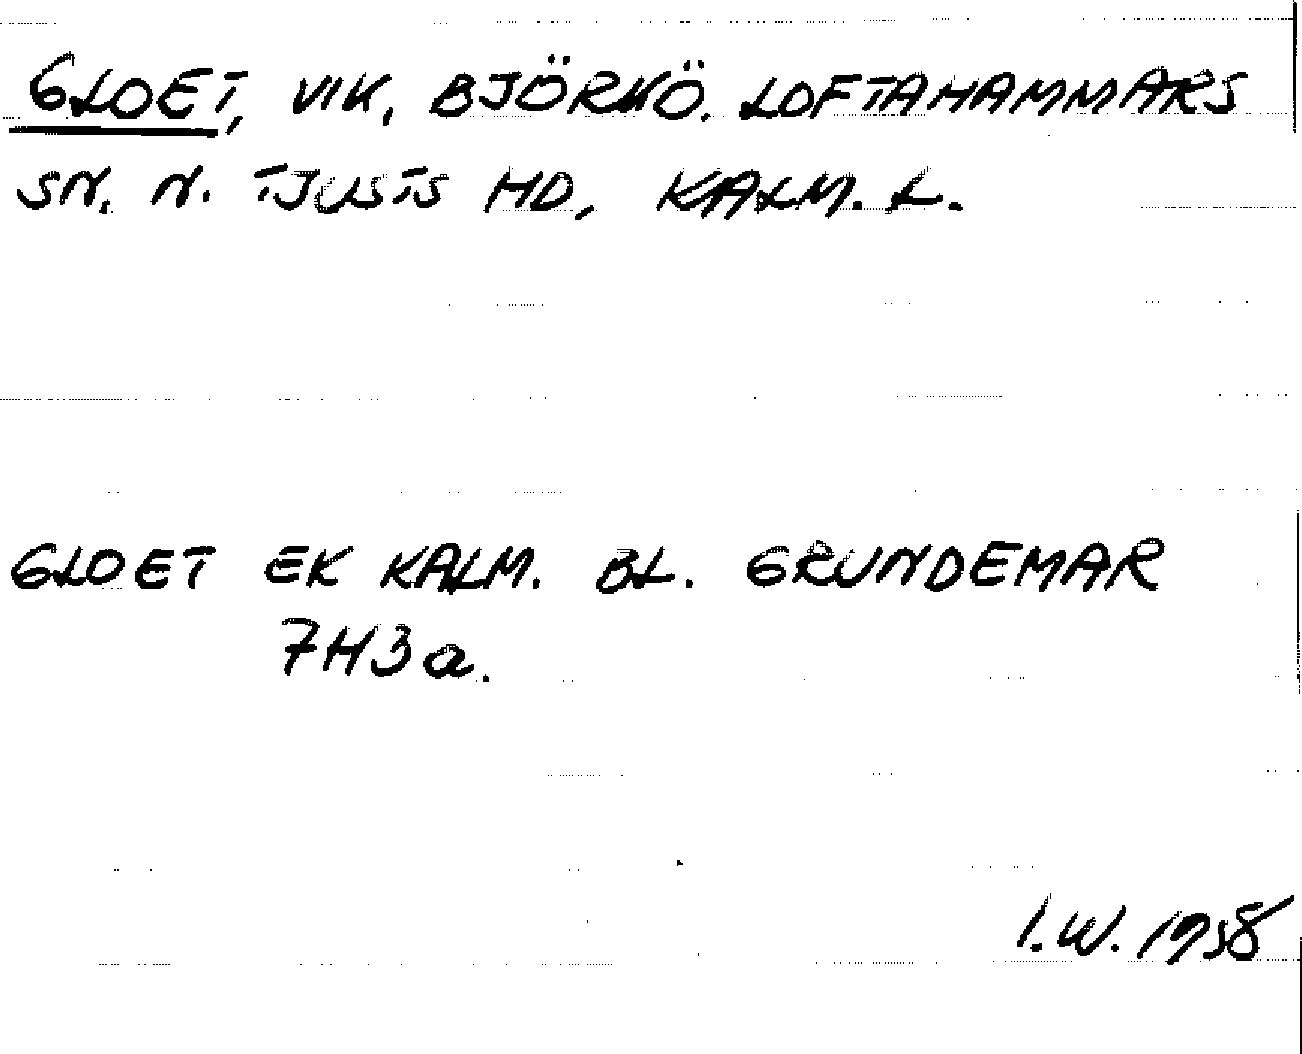 GLOET, VIK, BJÖRKÖ. LOFTAHAMMARS
SN. N. TJUSTS HD, KALM. L.
GLOET EK KALM. BL. GRUNDEMAR
7H3a.
I.W. 1958